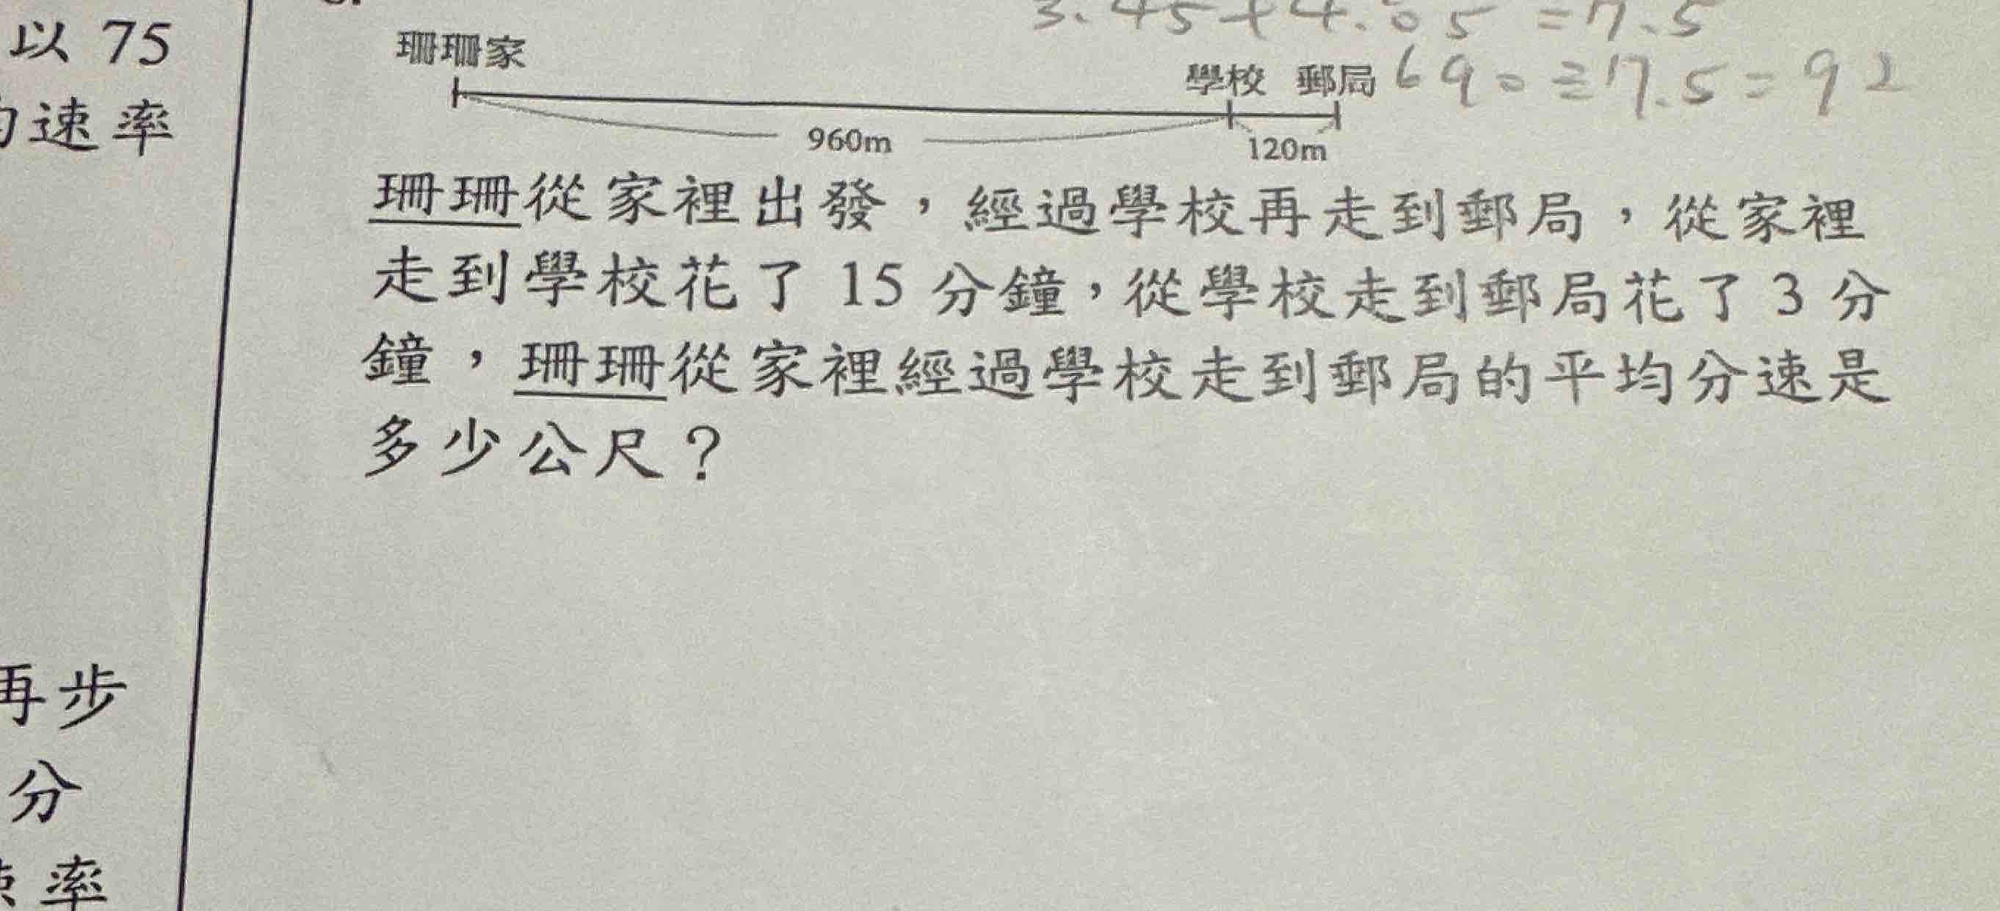 以 75
速率
3.45+4.05=7.5
珊珊家
學校 郵局
690÷7.5=92
960m
120m
珊珊從家裡出發，經過學校再走到郵局，從家裡
走到學校花了 15 分鐘，從學校走到郵局花了 3 分
鐘，珊珊從家裡經過學校走到郵局的平均分速是
多少公尺？
再步
分
率